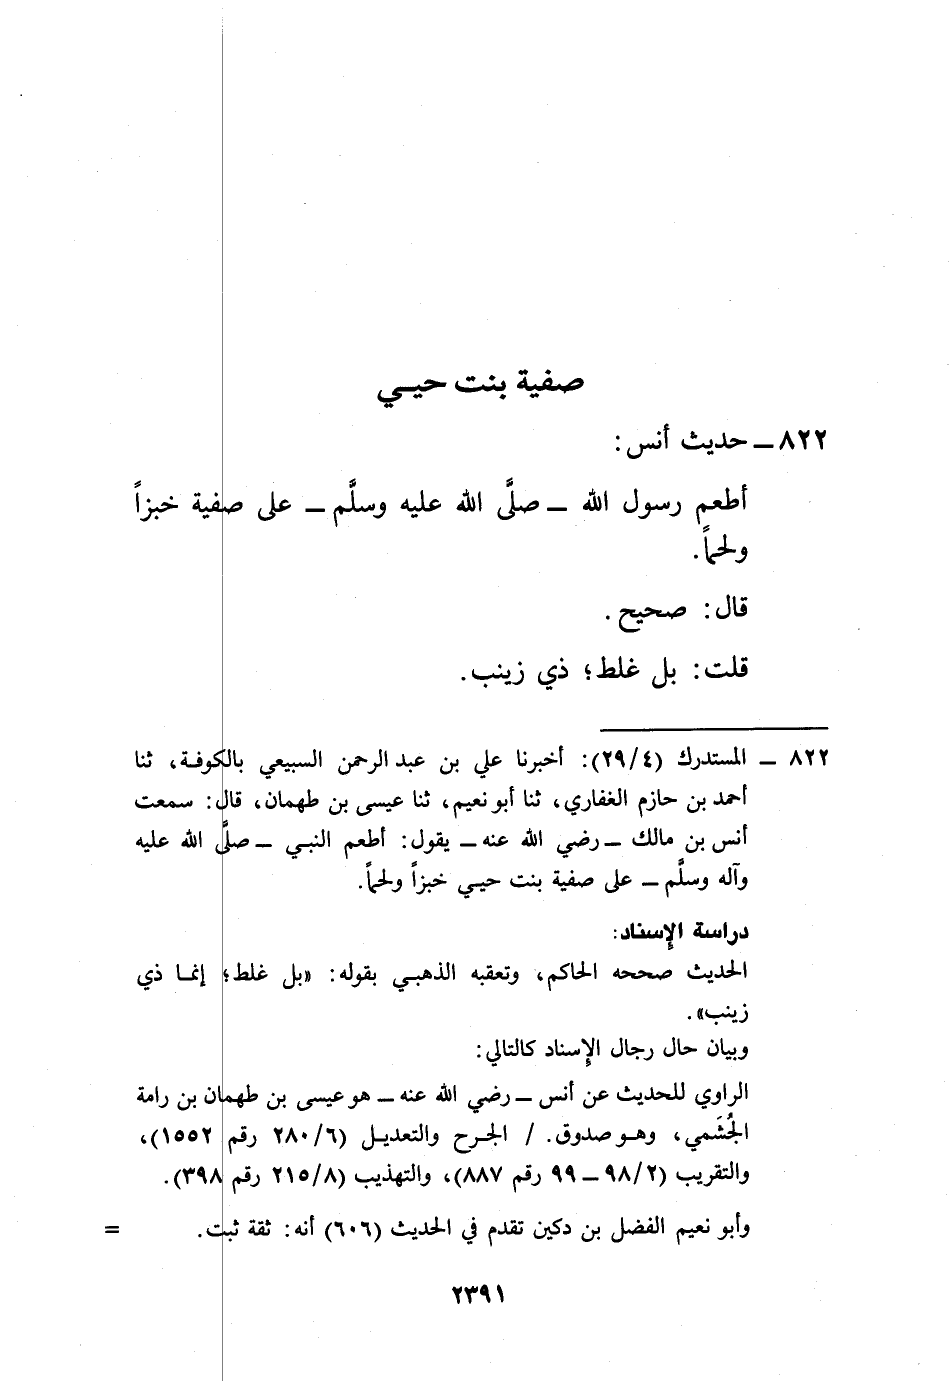 صفية بنت حيـي
٨٢٢ ــ حديث أنس:
أطعم رسول الله ــ صلَّى الله عليه وسلَّم ــ على صفية خبزاً
ولحماً.
قال: صحيح.
قلت: بل غلط؛ ذي زينب.
٨٢٢ ــ المستدرك (٢٩/٤): أخبرنا علي بن عبد الرحمن السبيعي بالكوفة، ثنا
أحمد بن حازم الغفاري، ثنا أبو نعيم، ثنا عيسى بن طهمان، قال: سمعت
أنس بن مالك ــ رضي الله عنه ــ يقول: أطعم النبي ــ صلَّى الله عليه
وآله وسلَّم ــ على صفية بنت حيـي خبزاً ولحماً.
دراسة الإسناد:
الحديث صححه الحاكم، وتعقبه الذهبـي بقوله: «بل غلط؛ إنمـا ذي
زينب».
وبيان حال رجال الإسناد كالتالي:
الراوي للحديث عن أنس ــ رضي الله عنه ــ هو عيسى بن طهمان بن رامة
الجُشَمي، وهـو صدوق. / الجـرح والتعديـل (٢٨٠/٦ رقم ١٥٥٢)،
والتقريب (٩٨/٢ ــ ٩٩ رقم ٨٨٧)، والتهذيب (٢١٥/٨ رقم ٣٩٨).
وأبو نعيم الفضل بن دكين تقدم في الحديث (٦٠٦) أنه: ثقة ثبت. =
٢٣٩١